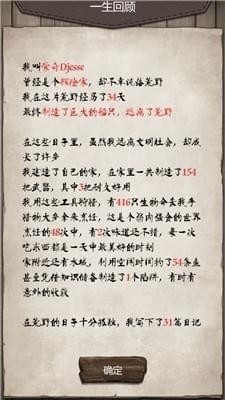 一生回顾
我叫柴奇Djesse
曾经是个探险家，却不幸流落荒野
我在这片荒野经历了34天
最终制造了巨大的船只，远离了荒野
在这些日子里，虽然我远离文明社会，却成
长了许多
我建造了自己的家，在家里一共制造了154
把武器，其中3把耐久好用
我用这些工具狩猎，有416只生物命丧我手
猎物大多拿来烹饪，这是个弱肉强食的世界
烹饪的48次中，有2次味道还不错，每一次
吃东西都是一天中最美好的时刻
家附近还有水域，利用空闲时间钓了54条鱼
甚至凭借知识储备制造了1个陷阱，有时有
意外的收获
在荒野的日子十分孤独，我写下了31篇日记
确定